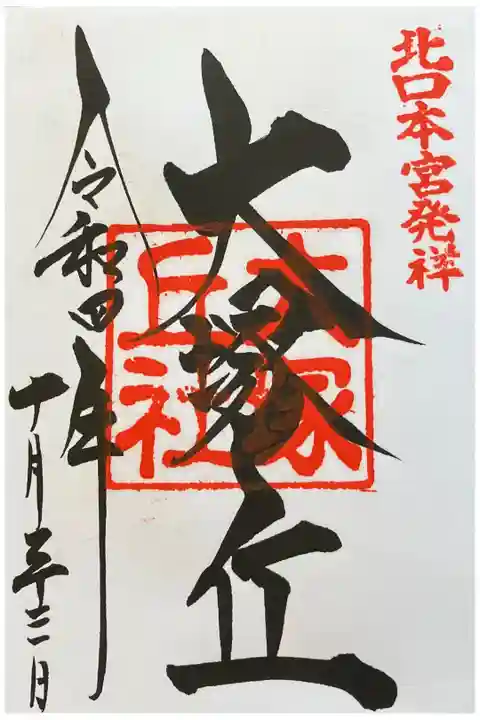 北口本宮発祥
大塚丘
大塚
丘社
令和四年
十月三十二日